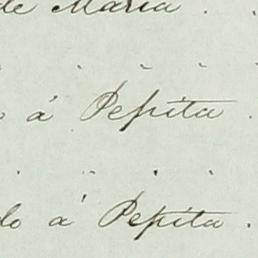 de Maria . .
á Pepita .
do á Pepita .